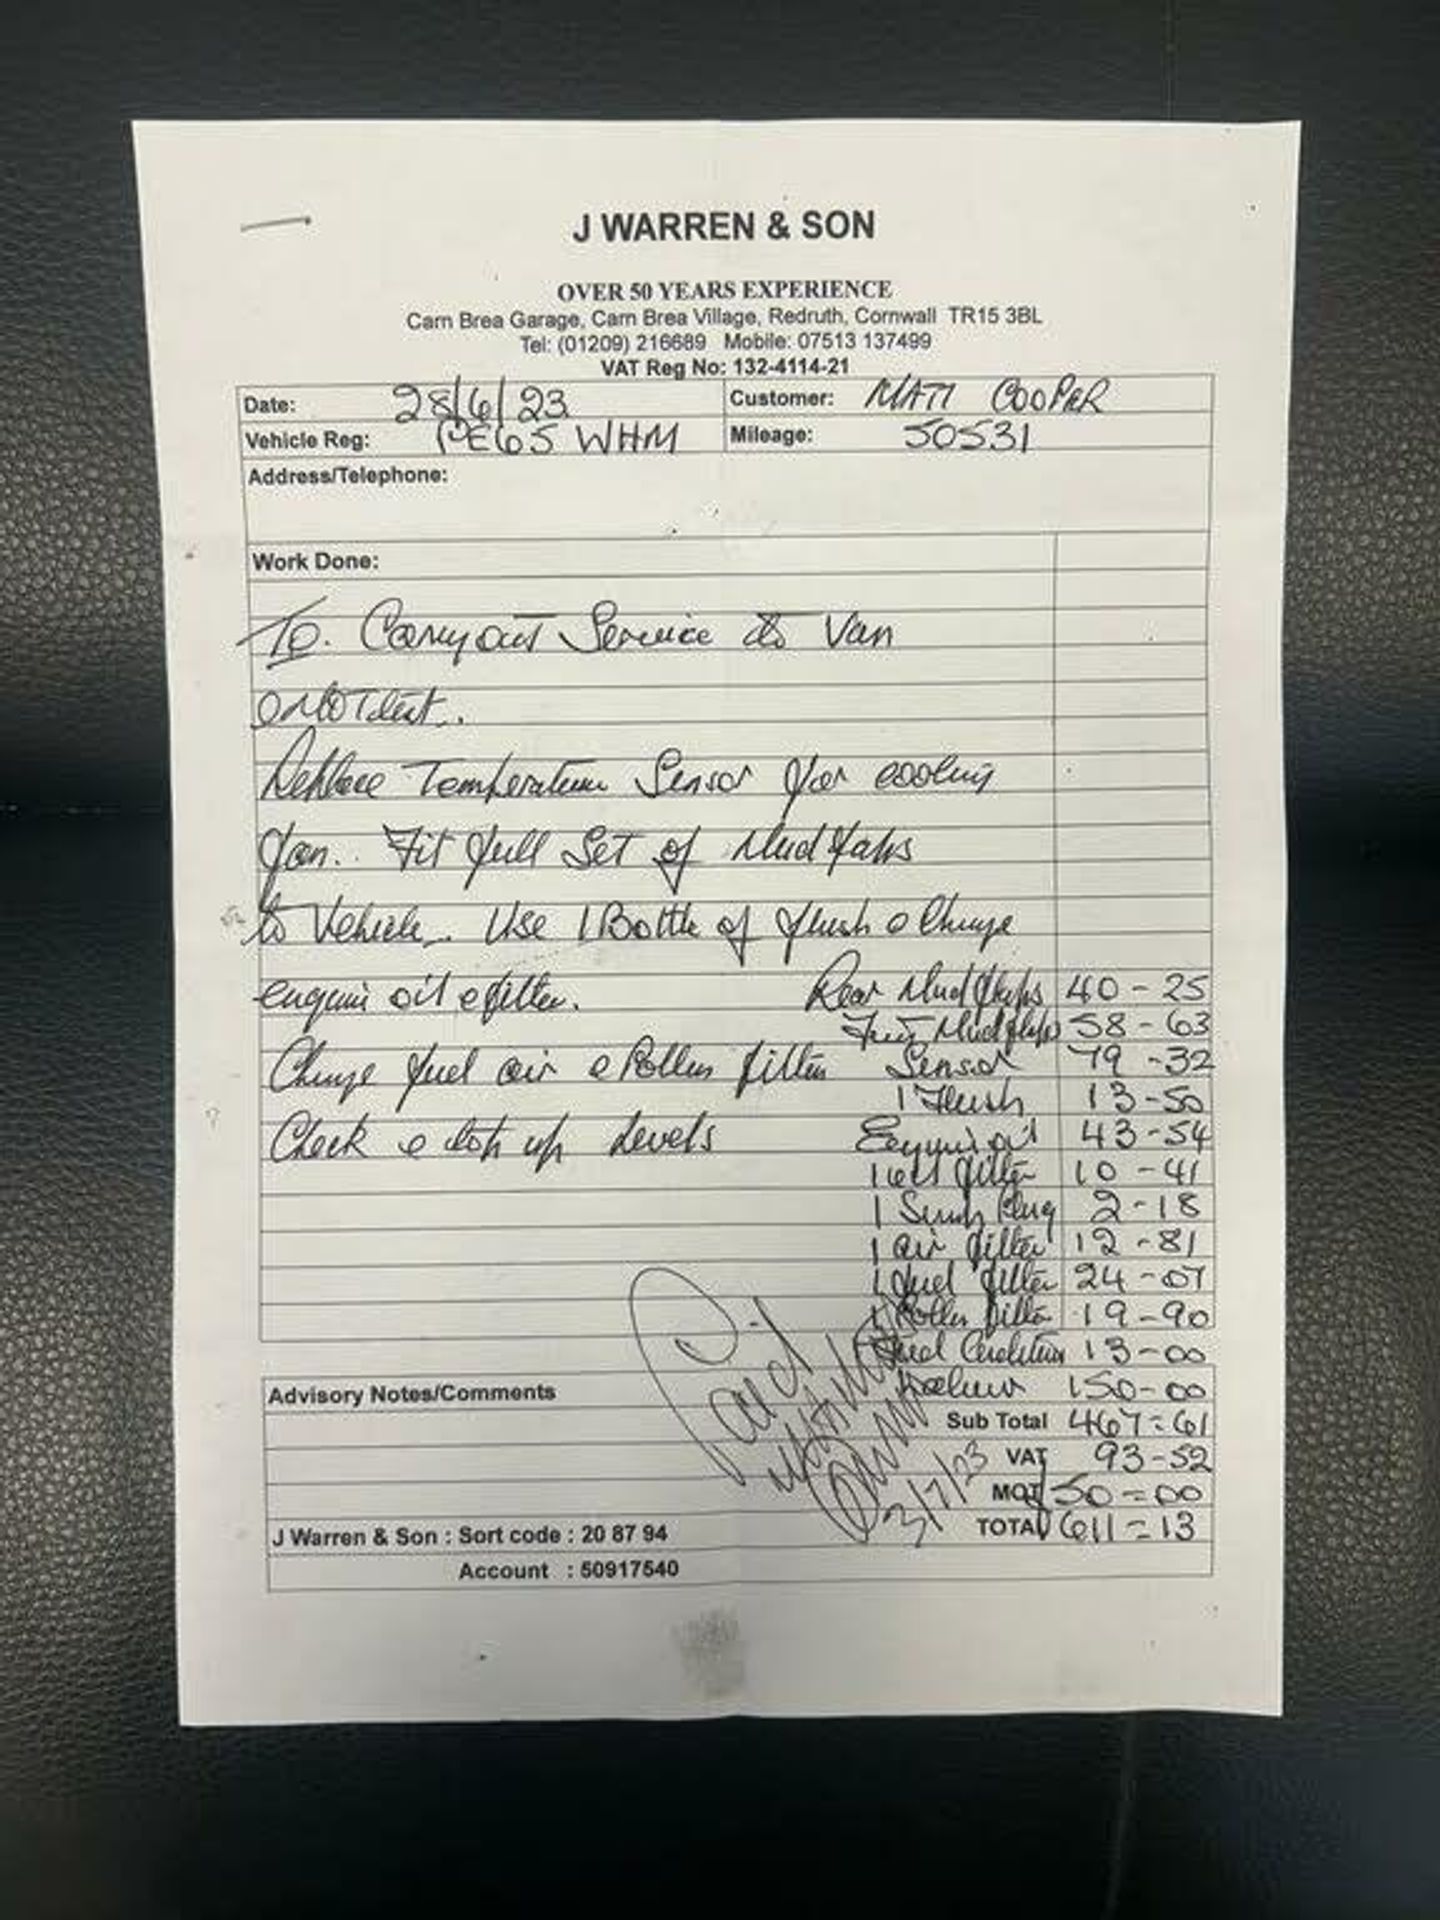 J WARREN & SON
OVER 50 YEARS EXPERIENCE
Carn Brea Garage, Carn Brea Village, Redruth, Cornwall TR15 3BL
Tel: (01209) 216689 Mobile: 07513 137499
VAT Reg No: 132-4114-21
Date: 28/6/23 Customer: MATT COOPER
Vehicle Reg: PE65 WHM Mileage: 50531
Address/Telephone:
Work Done:
To Carryout Service to Van
& MOT test.
Replace Temperature Sensor for cooling
fan.. Fit full Set of Mudflaps
to Vehicle. Use 1 Bottle of flush & Change
engine oil & filter. Rear Mudflaps 40-25
Frnt Mudflaps 58-63
Change fuel air & Pollen filters Sensor 79-32
1 Flush 13-50
Check & top up Levels Engine oil 43-54
1 oil filter 10-41
1 Sump Plug 2-18
1 air filter 12-81
1 fuel filter 24-07
1 Pollen filter 19-90
Fuel Condition 13-00
Advisory Notes/Comments Labour 150-00
Sub Total 467=61
Paid
3/7/23
VAT 93-52
MOT 50=00
J Warren & Son : Sort code : 20 87 94 TOTAL 611=13
Account : 50917540